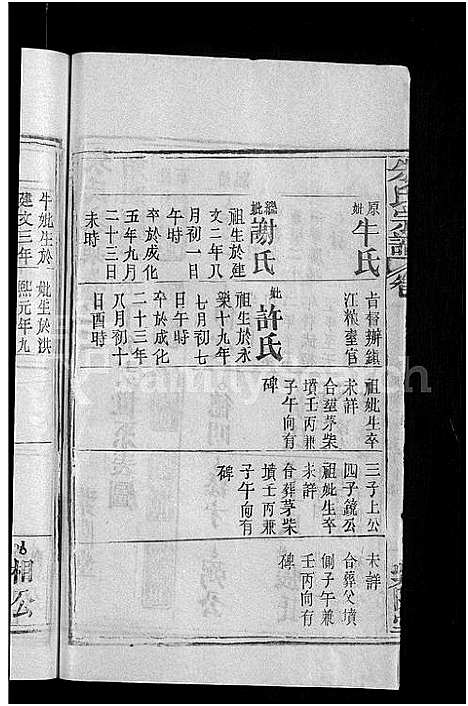 朱氏宗譜
卷
原妣牛氏
繼妣謝氏
祖生於建
文二年八
月初一日
午時
卒於成化
五年九月
二十三日
未時
肯督辦鎮
江粮臺官
妣許氏
祖生於永
樂十九年
七月初七
日午時
卒於成化
二十三年
八月初十
日酉時
祖妣生卒
未詳
合塟茅柴
墳壬丙兼
子午向有
碑
三子上公
四子鏡公
祖妣生卒
未詳
合葬茅柴
墳壬丙兼
子午向有
碑
未詳
合葬父墳
側子午兼
壬丙向有
碑
牛妣生於
建文三年
妣生於洪
熙元年九
相公